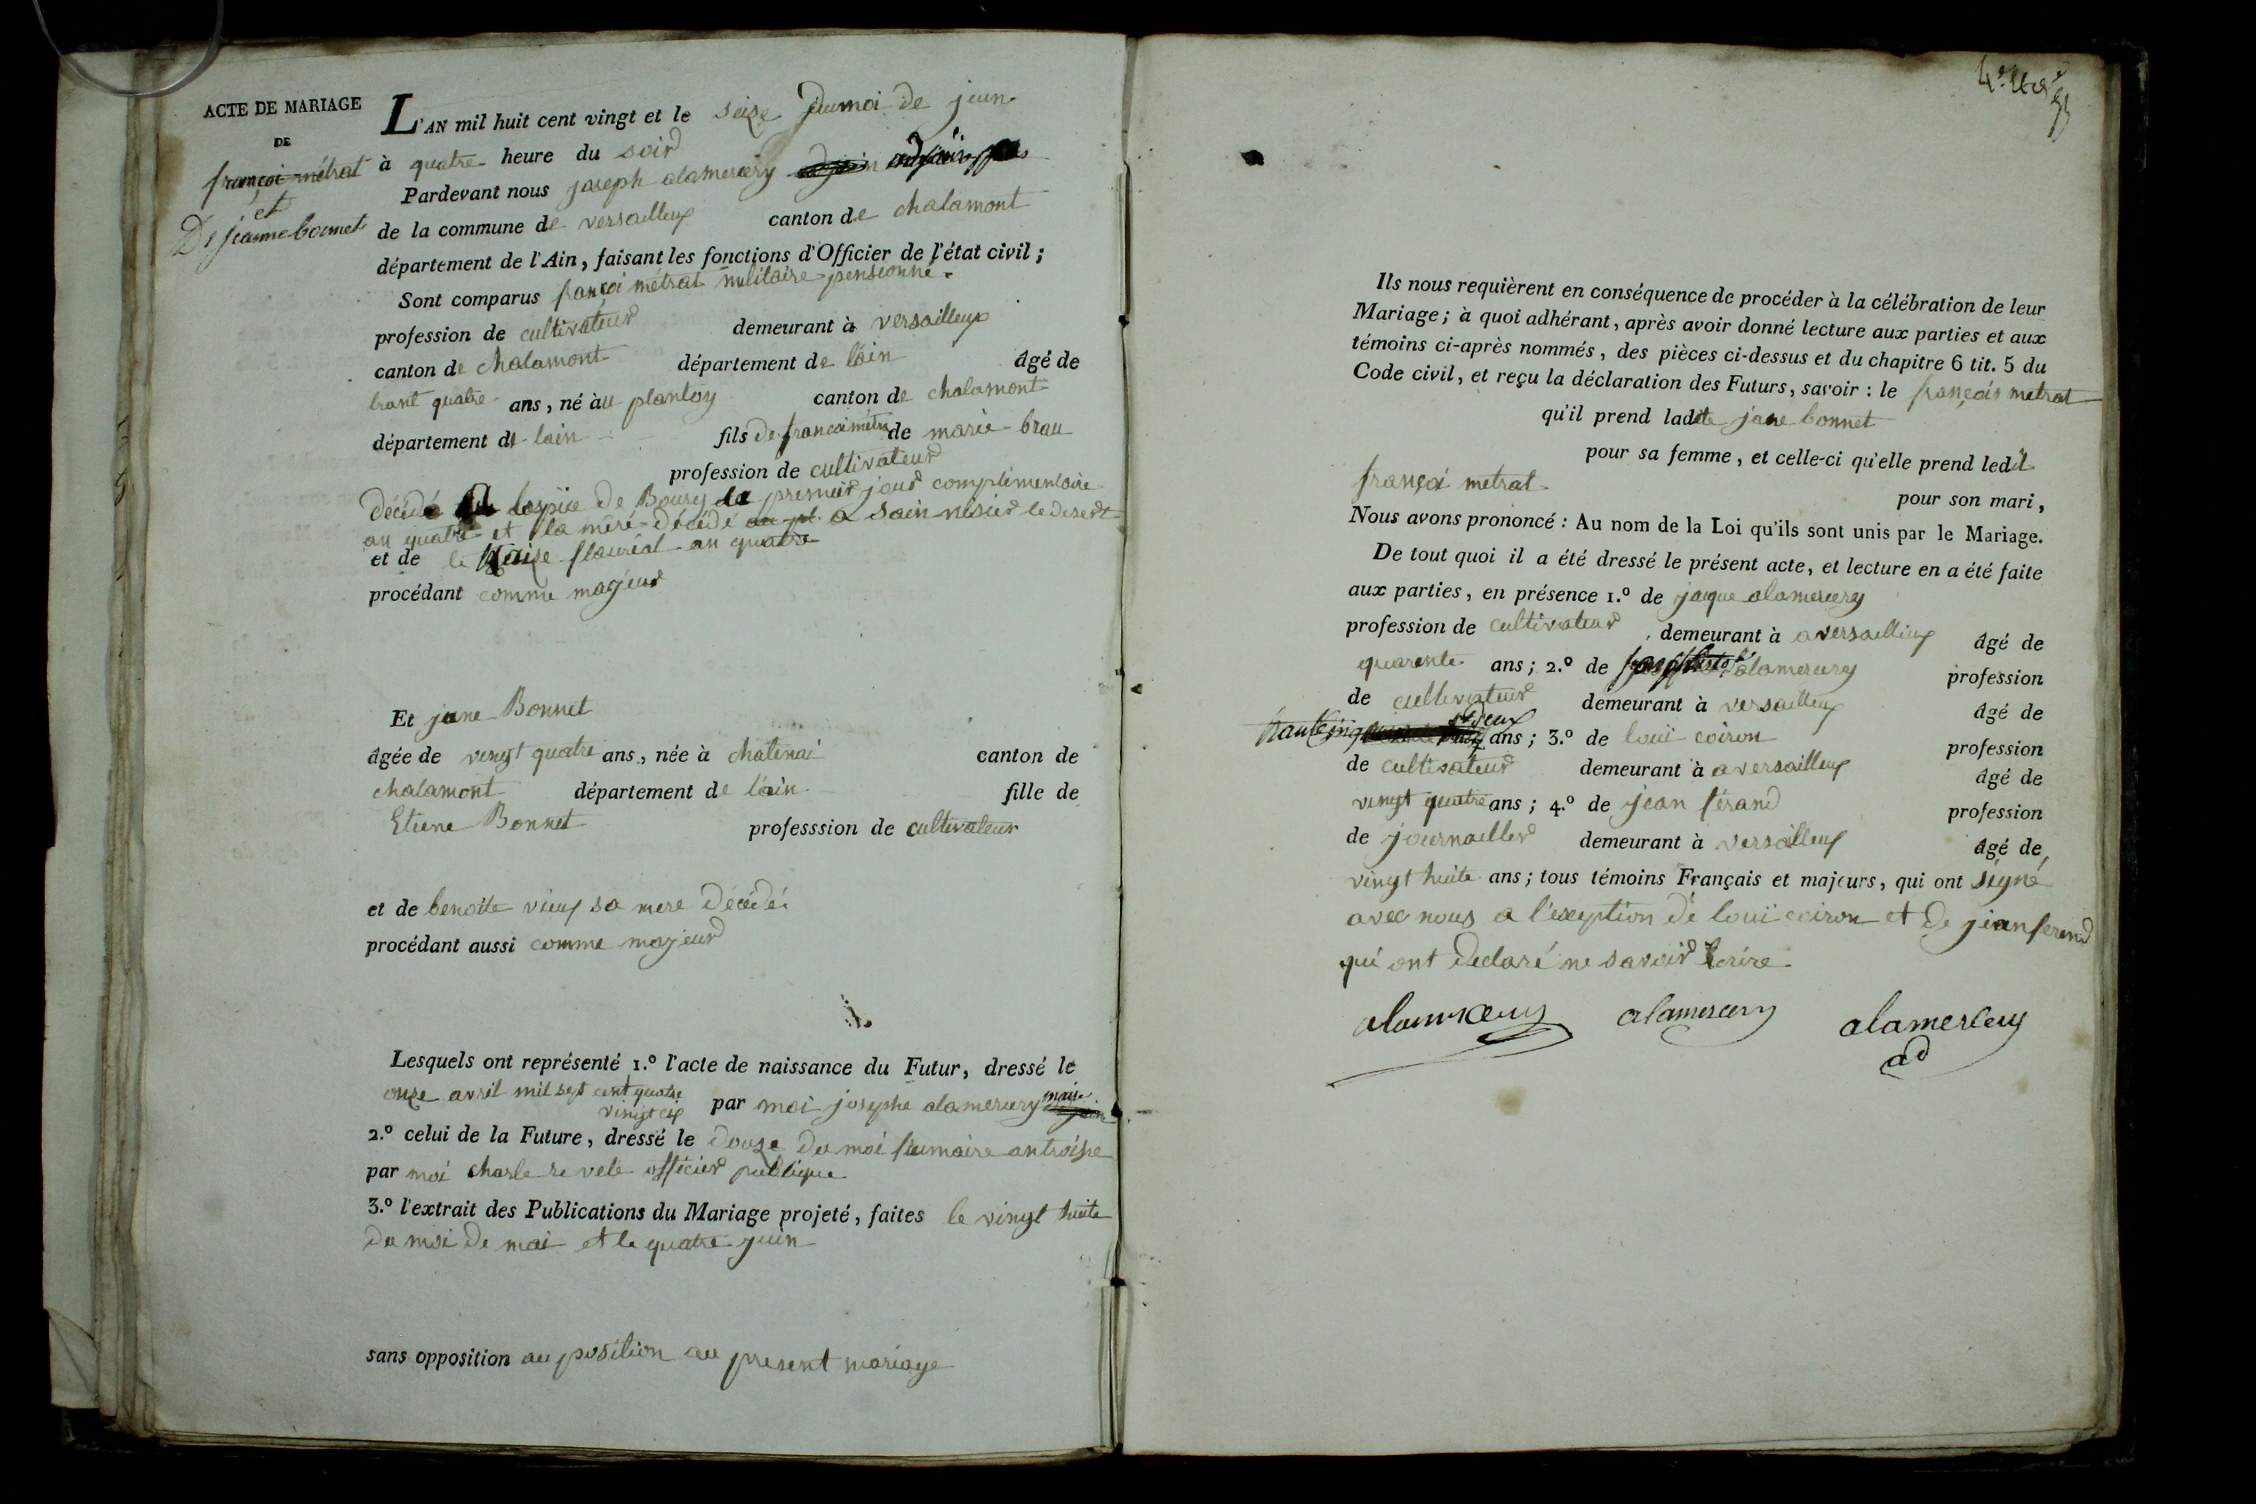 ACTE DE MARIAGE
DE
françoi métrat
et
De jeanne bonnet
L'AN mil huit cent vingt et le seize du moi de juin
à quatre heure du soir
Pardevant nous joseph alamercery
de la commune de versailleux canton de chalamont
département de l'Ain, faisant les fonctions d'Officier de l'état civil;
Sont comparus françoi métrat militaire pensionné.
profession de cultivateur demeurant à versailleux
canton de chalamont département de lain âgé de
trant quatre ans, né àu plantay canton de chalamont
département de lain fils de francoi métra de marie brau
profession de cultivateur
décédé lospice de Bourg le premier jour complémentaire
an quatre et la mère décédé a sain nisier le desert
et de le treize flauréal an quatre
procédant comme majeur
Et jane Bonnet
âgée de vingt quatre ans, née à chatenai canton de
chalamont département de l'ain fille de
Etiene Bonnet professsion de cultivateur
et de benoite vieux sa mere décédé
procédant aussi comme majeur
Lesquels ont représenté 1.º l'acte de naissance du Futur, dressé le
onze avril mil sept cent quatre
vingt six par moi josephe alamercery maire
2.º celui de la Future, dressé le douze du moi frumaire an troisie
par moi charle revele officier publique
3.º l'extrait des Publications du Mariage projeté, faites le vingt huite
du moi de mai et le quatre juin
sans opposition au position au present mariage
Ils nous requièrent en conséquence de procéder à la célébration de leur
Mariage; à quoi adhérant, après avoir donné lecture aux parties et aux
témoins ci-après nommés, des pièces ci-dessus et du chapitre 6 tit. 5 du
Code civil, et reçu la déclaration des Futurs, savoir: le françois metrat
qu'il prend ladite jane bonnet
pour sa femme, et celle-ci qu'elle prend ledit
françoi metrat
pour son mari,
Nous avons prononcé: Au nom de la Loi qu'ils sont unis par le Mariage.
De tout quoi il a été dressé le présent acte, et lecture en a été faite
aux parties, en présence 1.º de jaque alamercery
profession de cultivateur demeurant à a versailleux âgé de
quarente ans; 2.º de alamercery profession
de cultivateur demeurant à versailleux âgé de
ans; 3.º de louï coiron profession
de cultivateur demeurant à a versailleux âgé de
vingt quatre ans; 4.º de jean férand profession
de journailler demeurant à versailleux âgé de
vingt huite ans; tous témoins Français et majeurs, qui ont signé
avec nous a l'exeption de louï coiron et de jean ferend
qui ont declaré ne savoir Ecrire
alamercery alamercery alamercery
ad